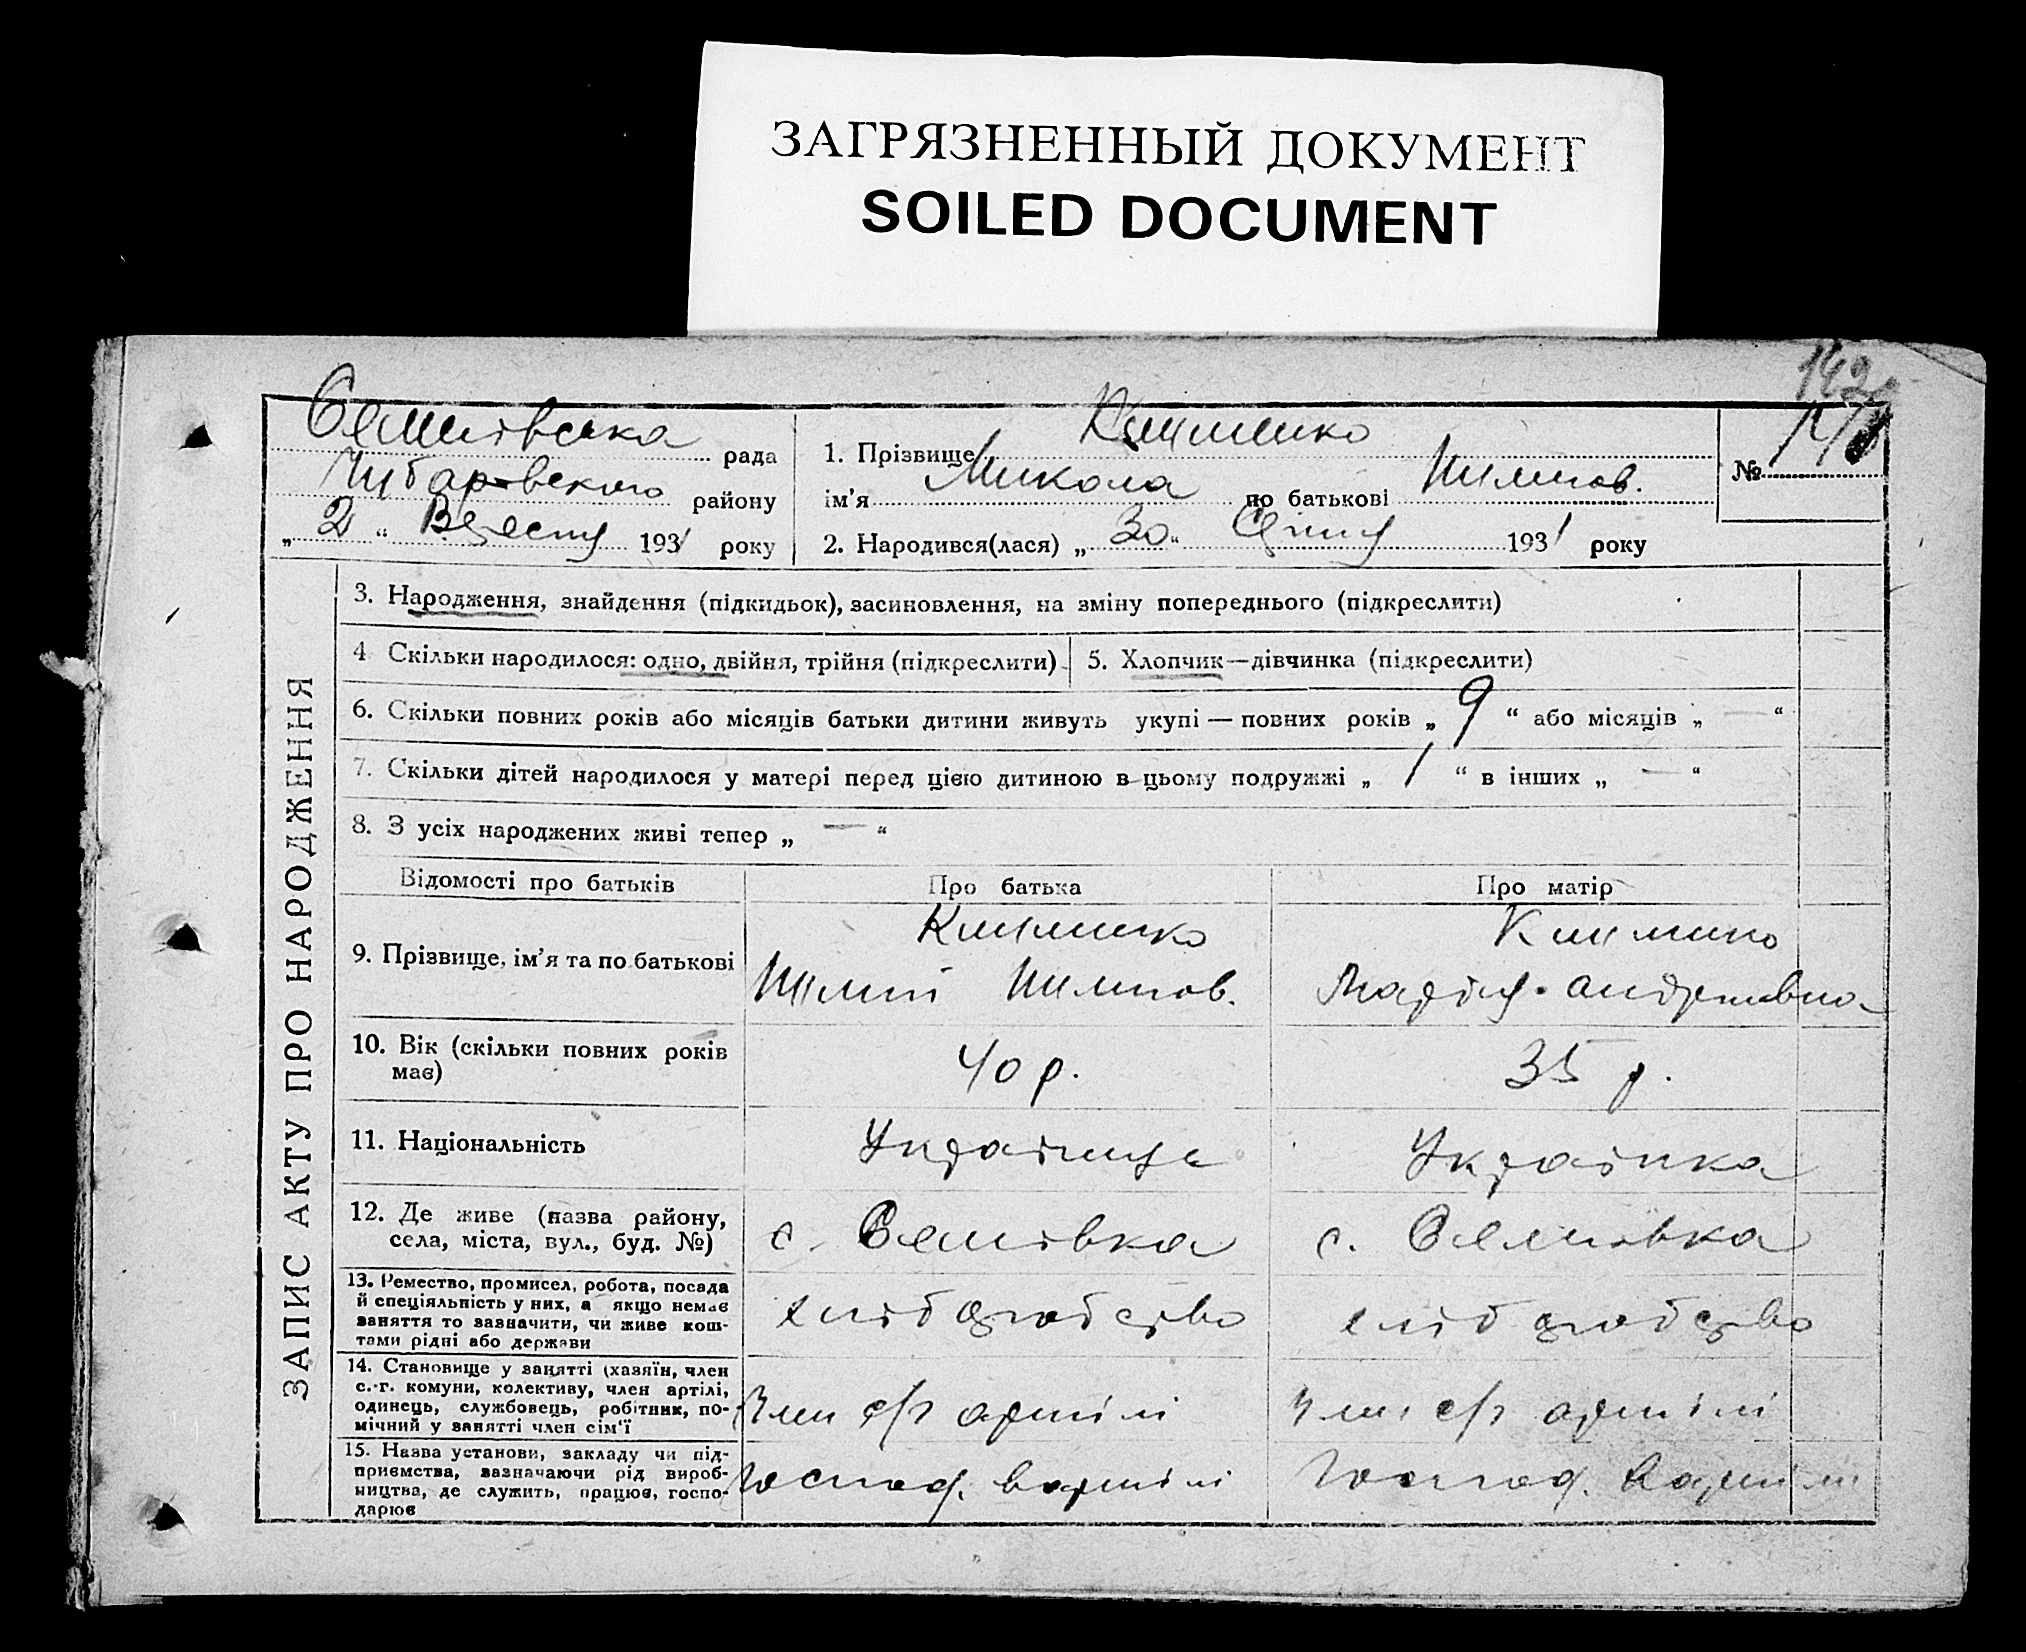 ЗАГРЯЗНЕННЫЙ ДОКУМЕНТ
SOILED DOCUMENT
142
Семенівська рада
Чубаревского району
„ 2 “ Вересня 1931 року
1. Прізвище Клименко
ім’я Микола по батькові
№
2. Народився(лася) „ 30 “ Серпня 1931 року
ЗАПИС АКТУ ПРО НАРОДЖЕННЯ
3. Народження, знайдення (підкидьок), засиновлення, на зміну попереднього (підкреслити)
4 Скільки народилося: одно, двійня, трійня (підкреслити)
5. Хлопчик—дівчинка (підкреслити)
6. Скільки повних років або місяців батьки дитини живуть укупі — повних років „ 9 “ або місяців „ — “
7. Скільки дітей народилося у матері перед цією дитиною в цьому подружжі „ 1 “ в інших „ — “
8. З усіх народжених живі тепер „ — “
Відомості про батьків
Про батька
Про матір
9. Прізвище, ім’я та по батькові
Клименко
Клименко
Марія Андреивна
10. Вік (скільки повних років має)
40 р.
35 р.
11. Національність
Українець
Українка
12. Де живе (назва району,
села, міста, вул., буд. №)
с. Семенівка
с. Семенівка
13. Ремество, промисел, робота, посада
й спеціяльність у них, а якщо немає
заняття то зазначити, чи живе кош-
тами рідні або держави
хліборобство
хліборобство
14. Становище у занятті (хазяїн, член
с.-г. комуни, колективу, член артілі,
одинець, службовець, робітник, по-
мічний у занятті член сім’ї
Член с/г артілі
Член с/г артілі
15. Назва установи, закладу чи під-
приємства, зазначаючи рід вироб-
ництва, де служить, працює, госпо-
дарює
Господ. в артілі
Господ. в артілі